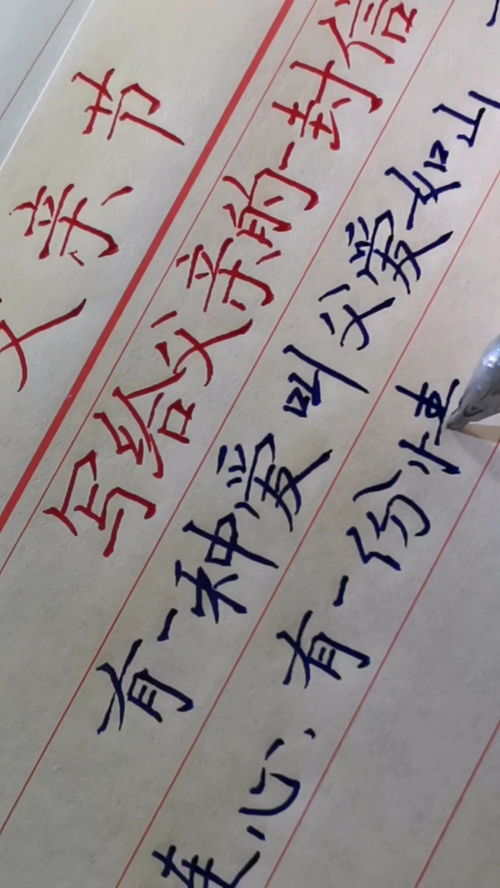 父亲节
写给父亲的一封信
有一种爱叫父爱如山
心，有一份